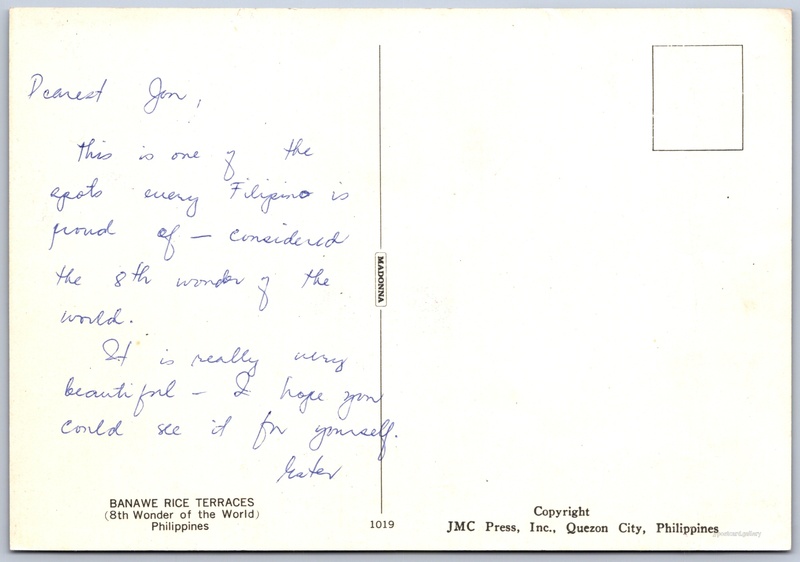 Dearest Jon,
This is one of the
spots every Filipino is
proud of — considered
the 8th wonder of the
world.
It is really very
beautiful — I hope you
could see it for yourself.
Ester
BANAWE RICE TERRACES
(8th Wonder of the World)
Philippines
MADONNA
1019
Copyright
JMC Press, Inc., Quezon City, Philippines